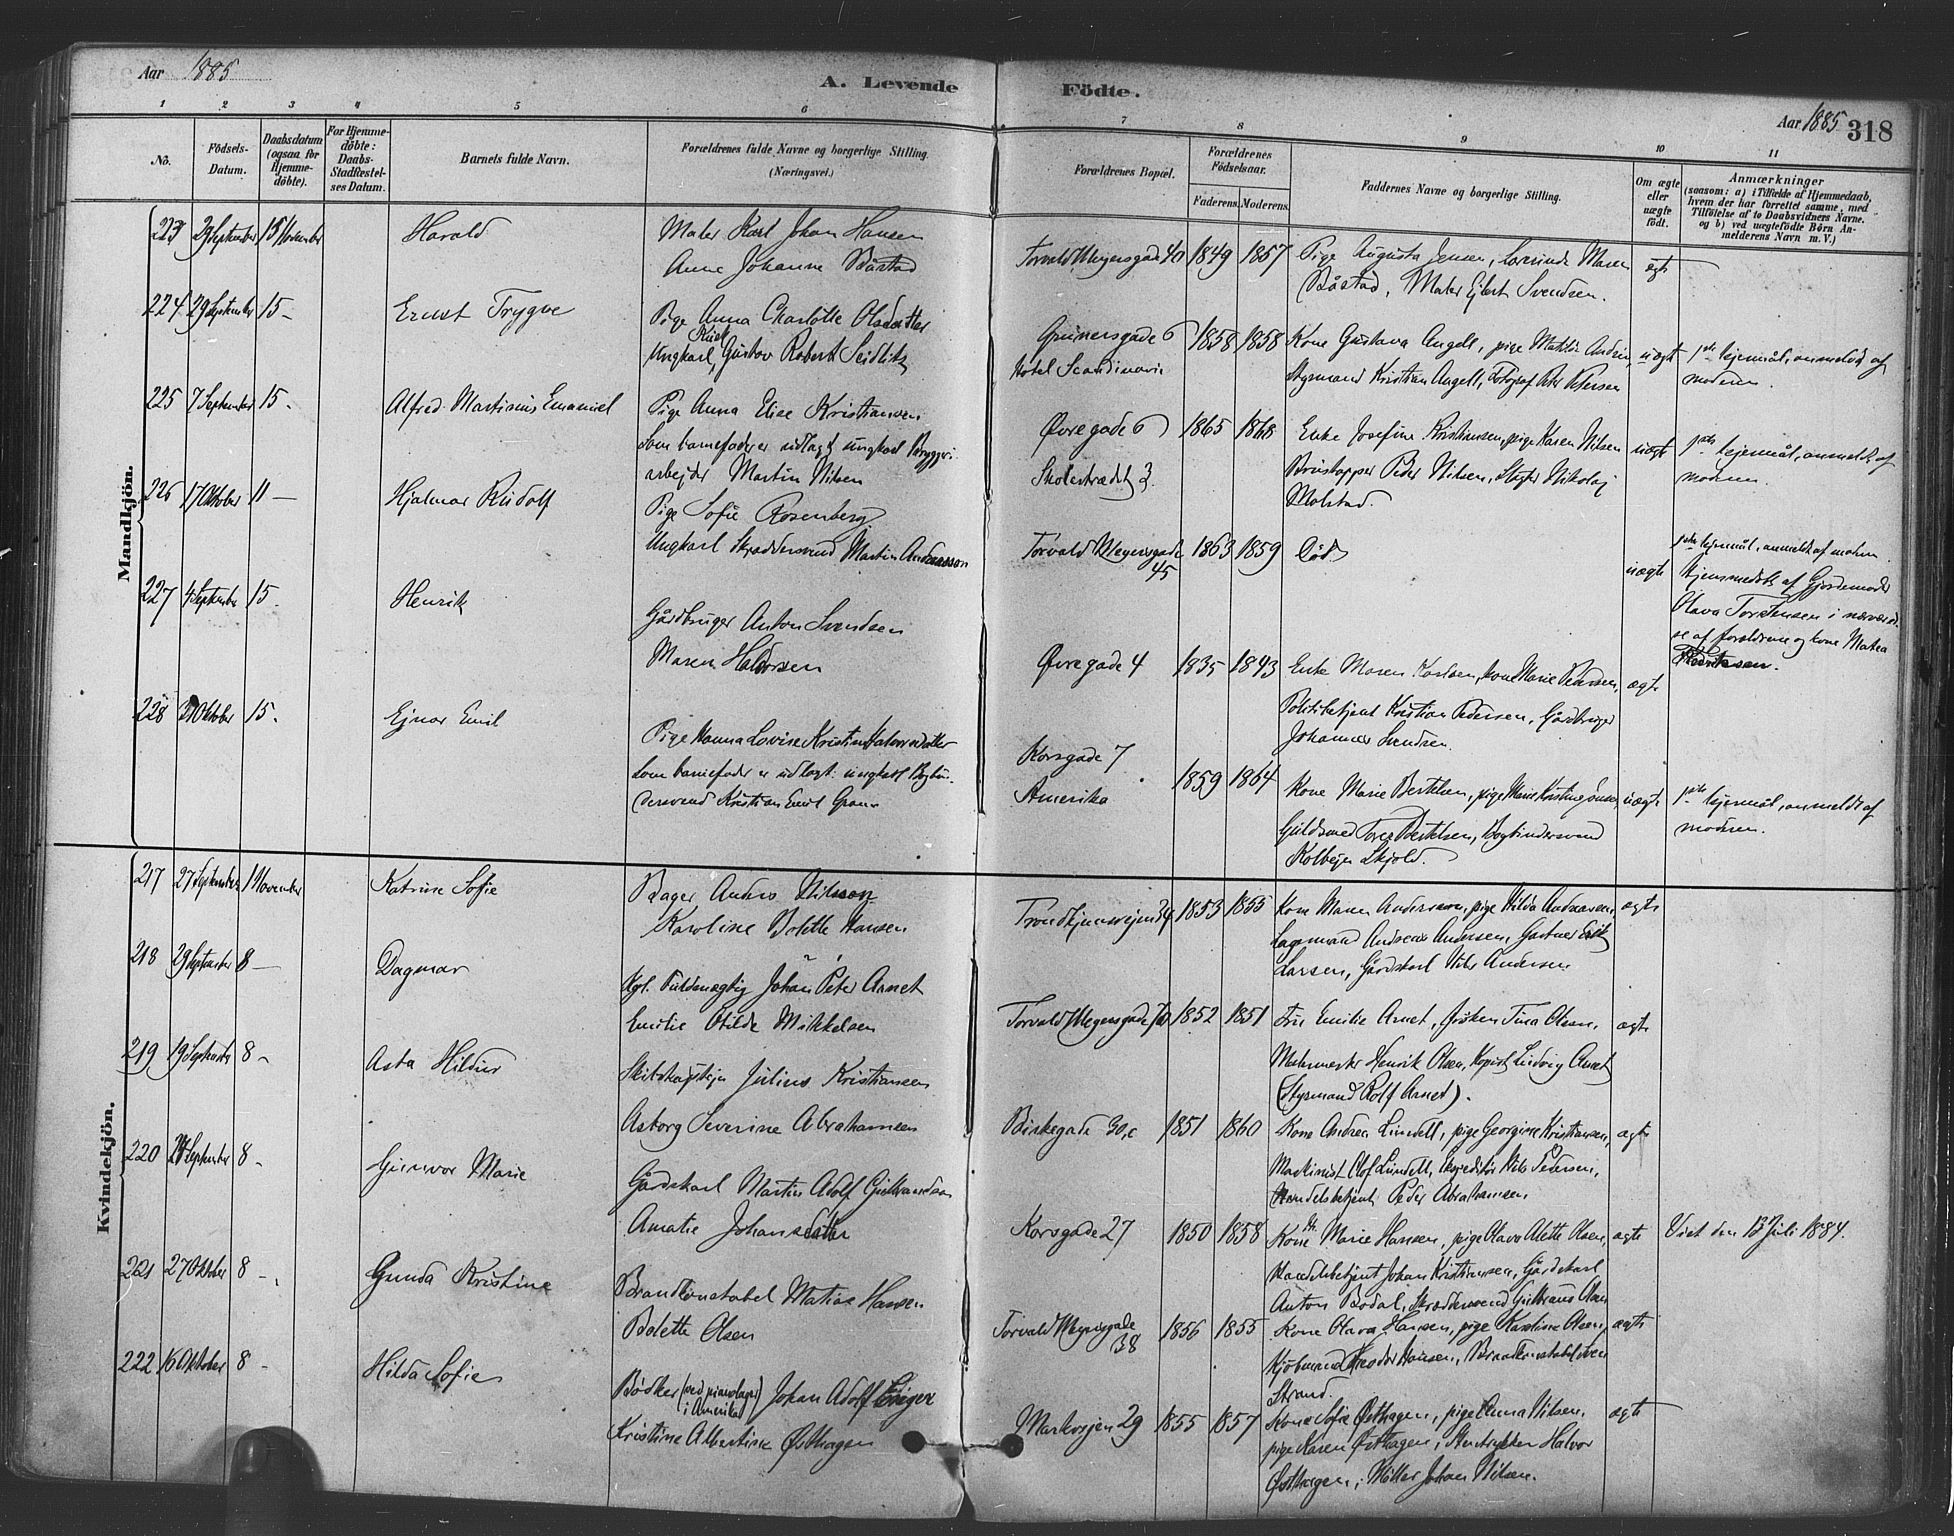 Aar 1885
A. Levende Födte.
Aar 1885 318
1 2 3 4 5 6 7 8 9 10 11
No.
Födsels-Datum.
Daabsdatum (ogsaa for Hjemme-döbte).
For Hjemme-döbte: Daabs-Stadfæstel-ses Datum.
Barnets fulde Navn.
Forældrenes fulde Navne og borgerlige Stilling. (Næringsvei.)
Forældrenes Bopæl.
Forældrenes Födselsaar.
Faderens. Moderens.
Faddernes Navne og borgerlige Stilling.
Om ægte eller uægte födt.
Anmærkninger
(saasom: a) i Tilfælde af Hjemmedaab,
hvem der har forrettet samme, med
Tilföielse af to Daabsvidners Navne,
og b) ved uægtefödte Börn An-
melderens Navn m. V.)
Mandkjön.
223 29 September 15 November Harald
Maler Karl Johan Hansen
Anne Johanne Båstad
Torvald Meyersgade 40 1849 1857
Pige Augusta Jensen, Maren
Båstad, Maler Ejlert Svendsen.
ægte
224 29 September 15 – Ernst Trygve
Pige Anna Charlotte Olsdatter
Ungkarl, Gustav Robert Seidlitz
Grünersgade 6
Hotel Scandinavie
1858 1858
Kone Gustava Angell, pige Matilde
Styrmand Kristian Angell, Fotograf Petersen
uægte
1ste lejermål, anmeldt af
moderen.
225 7 September 15 . Alfred Martinius Emanuel
Pige Anna Elise Kristiansen
Som barnefader er udlagt ungkarl Bryggeri
arbejder Martin Nilsen
Øvregade 6
Skolestrædet 3.
1865 1868
Enke Josefine Kristiansen, pige Karen Nilsen
Peder Nilsen, Nikolaj
Molstad.
uægte
1ste lejermål, anmeldt af
moderen.
226 17 Oktober 11 – Hjalmar Rudolf
Pige Sofie Rosenberg
Ungkarl Skræddersvend Martin Andreasson
Torvald Meyersgade
45
1863 1859
Død
uægte
1ste lejermål, anmeldt af moderen
Hjemmedøbt af Gjordemoder
Olava Torstensen i nærværel-
se af forældrene og kone Matea
227 4 September 15. Henrik
Gårdbruger Anton Svendsen
Maren Halvorsen
Øvregade 4 1835 1843
Enke Maren Karlsen, kone Marie Pedersen,
Politibetjent Kristian Pedersen, Gårdbruger
Johannes Svendsen.
ægte
228 Oktober 15. Ejnar Emil
Pige Hanna Lovise Kristine Halvorsdatter
Som barnefader er udlagt: ungkarl Bogbin-
dersvend Kristian Emil
Korsgade 7
Amerika
1859 1864
Kone Marie Bertelsen, pige Marie Kristine
Guldsmed Bertelsen, Bogbindersvend
Kolbejn Skjold.
uægte
1ste lejermål, anmeldt af
moderen.
Kvindekjön.
217 27 September 1 November Katrine Sofie
Bager Anders Nilsson
Karoline Bolette Hansen
Trondhjemsvejen 34 1853 1855
Kone Maren Andersen, pige Hilda Andreasen,
Andreas Andersen, Gartner Erik
Larsen, Gårdskarl Nils Andersen
ægte
218 29 September 8 – Dagmar
Kgl. Fuldmægtig Johan Peter Arnet
Emilie Otilde Mikkelsen
Torvald Meyersgade 70 1852 1851
Fru Emilie Arnet, frøken Tina Olsen,
Malermester Henrik Olsen, Kopist Ludvig Arnet
(Styrmand Rolf Arnet).
ægte
219 19 September 8 – Asta Hildur
Julius Kristiansen
Asborg Severine Abrahamsen
Birkegade 30,c 1851 1860
Kone Andrea Lundell, pige Georgine Kristiansen,
Maskinist Olof Lundell, Ekspeditør Nils Pedersen,
Handelsbetjent Peder Abrahamsen
ægte
220 September 8 – Gunvor Marie
Gårdskarl Martin Adolf Gulbrandsen
Amalie Johansdatter
Korsgade 27 1850 1858
Kone Marie Hansen, pige Olava Alette Olsen,
Handelsbetjent Johan Kristiansen, Gårdskarl
Anton Bodal, Skræddersvend Gulbrand Olsen
ægte
Viet den 13 Juli 1884.
221 27 Oktober 8 – Gunda Kristine
Brandkonstabel Matias Hansen
Bolette Olsen
Torvald Meyersgade
38
1856 1855
Kone Olava Hansen, pige Karoline Olsen,
Kjøbmand Hansen, Brandkonstabel Sven
Strand.
ægte
222 16 Oktober 8 – Hilda Sofie
Bødker (ved pianolager
i Amerika) Johan Adolf
Kristine Albertine Østhagen
Markvejen 29 1855 1857
Kone Sofie Østhagen, pige Anna Nilsen,
pige Karen Østhagen, Stentrykker Halvor
Østhagen, Møller Johan Nilsen.
ægte